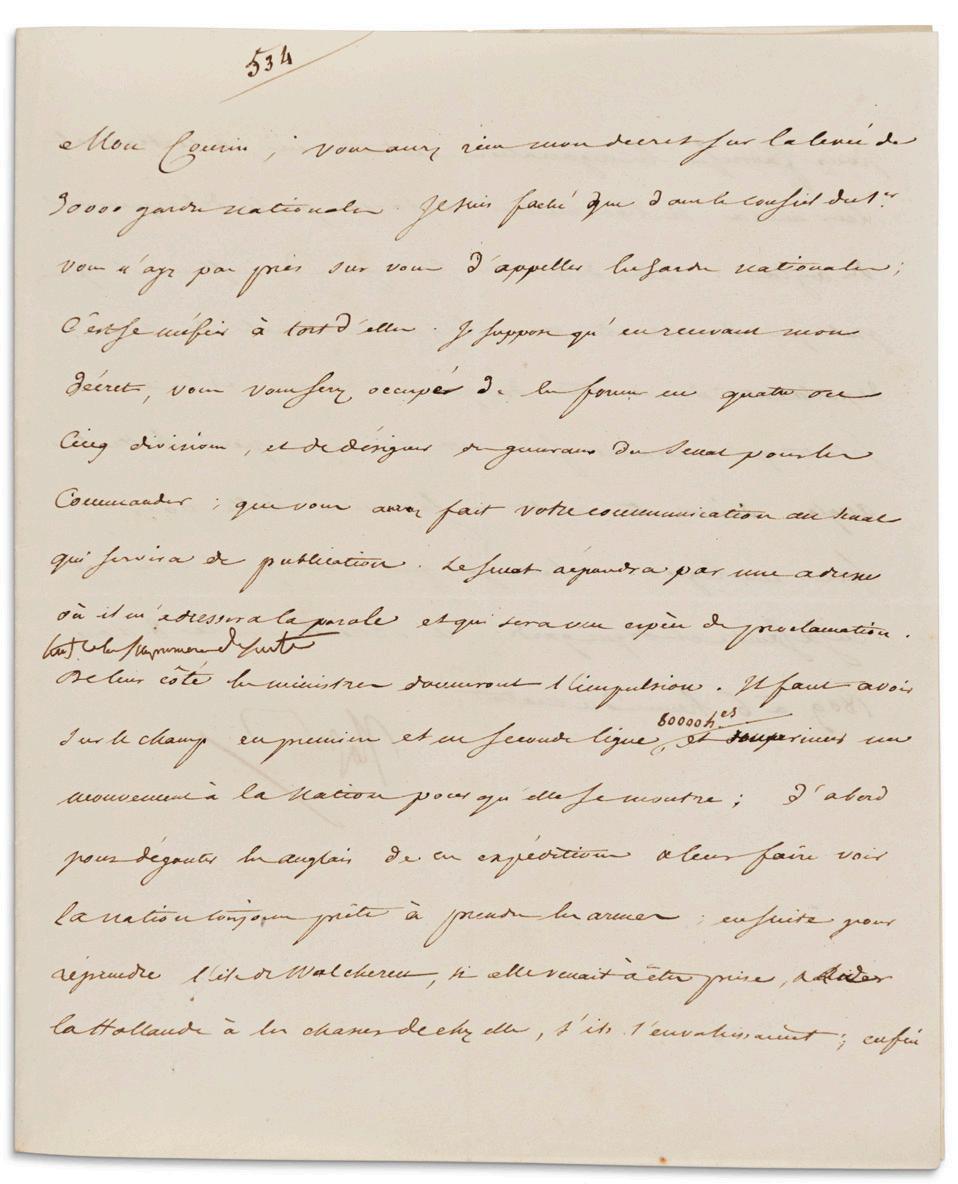 534
Mon Cousin, vous aurez reçu mon decret sur la levée de
30000 gardes nationales. Je suis faché que dans le conseil du 1.er
vous n'ayez pas pris sur vous d'appeller les gardes nationales;
C'est se méfier à tort d'elles. Je suppose qu'en recevant mon
décret, vous vous serez occupés de les former en quatre ou
Cinq divisions, et de désigner des généraux du Senat pour les
Commander; que vous aurez fait votre communication au senat
qui servira de publication. Le senat répondra par une adresse
où il m'adressera la parole et qui sera une espèce de proclamation.
De leur côté les ministres donneront l'impulsion. Il faut avoir
80000 h.es
sur le champ en premier et en seconde ligne, et un
mouvement à la nation pour qu'elle se montre; d'abord
pour dégouter les anglais de ces expéditions & leur faire voir
la nation toujours prête à prendre les armes; ensuite pour
réprendre l'ile de Walcheren, si elle venait à être prise, & aider
la Hollande à les chasser de chez elle, s'ils l'envahissaient; enfin